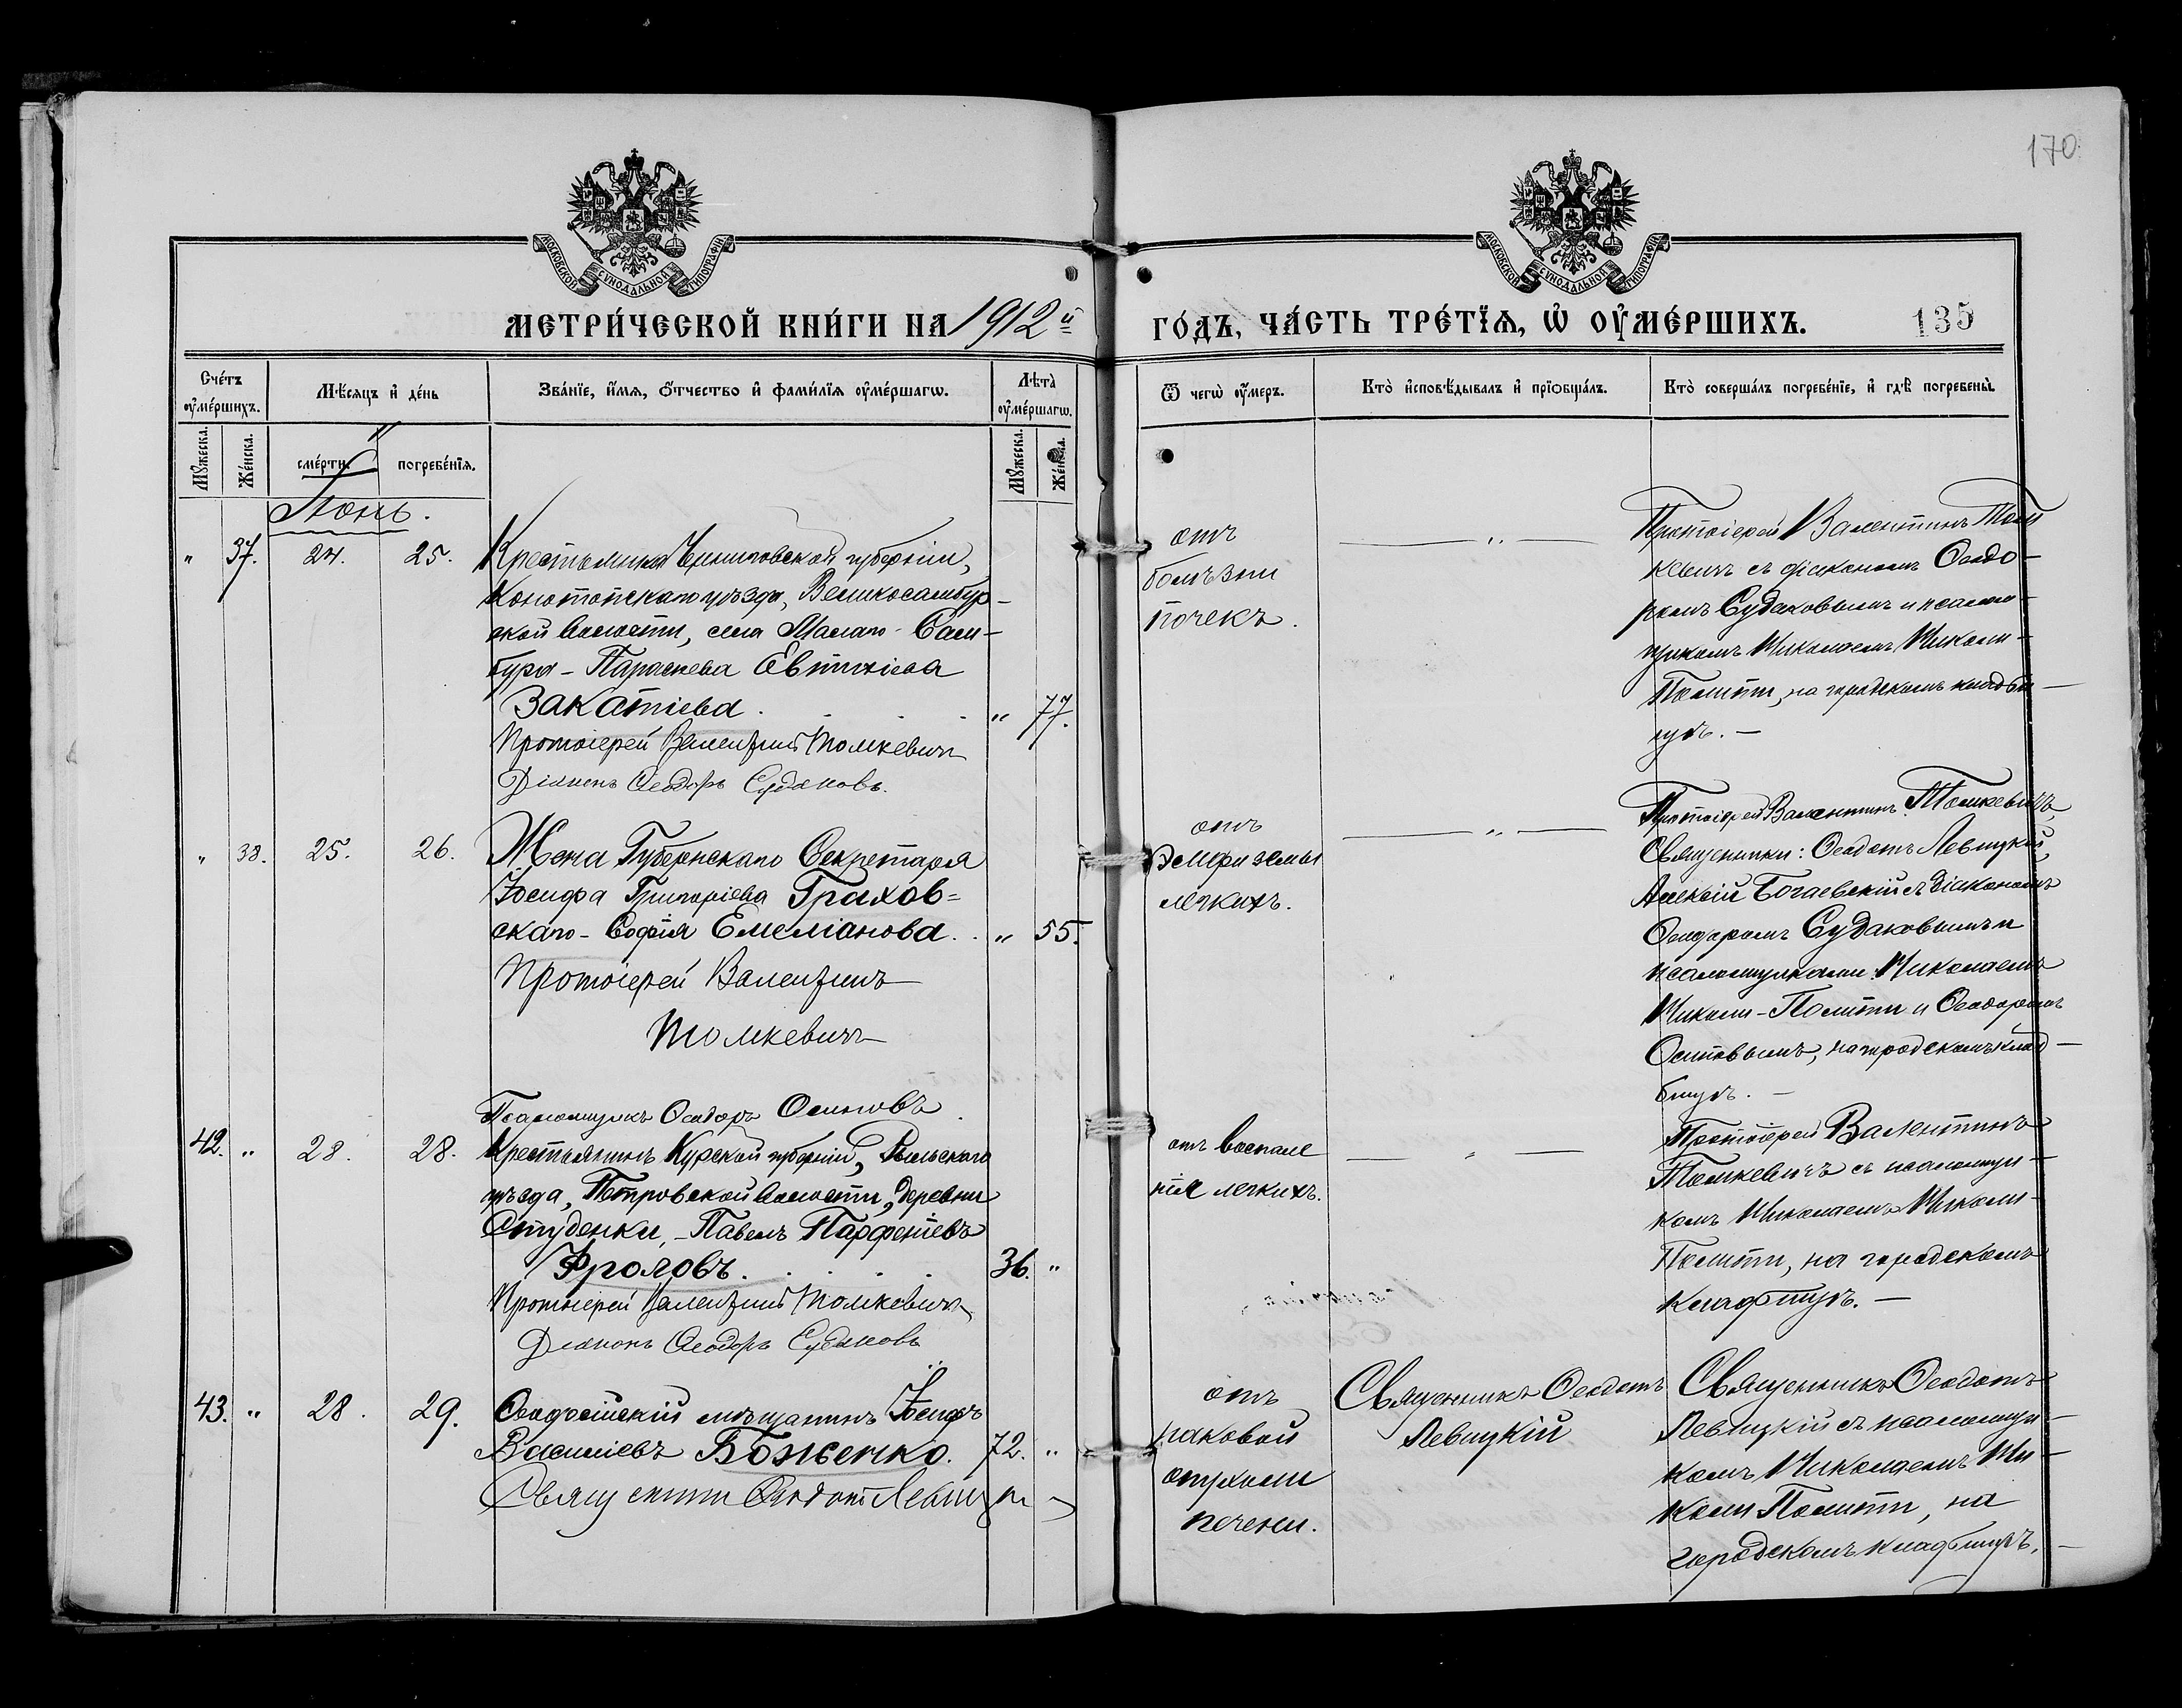 170
МОСКОВСКОЙ СѴНОДАЛЬНОЙ ТИПОГРАФІИ
МОСКОВСКОЙ СѴНОДАЛЬНОЙ ТИПОГРАФІИ
МЕТРИ́ЧЕСКОЙ КНИ́ГИ НА 1912й
ГО́ДЪ, ЧА́СТЬ ТРЕ́ТЇѦ, Ѡ҆ ОУ҆МЕ́РШИХЪ.
135
Сче́тъ оу҆ме́ршихъ.
Мѣ́сяцъ и҆ де́нь
Зва́нїе, и҆́мѧ, ѻ҆́тчество и҆ фами́лїѧ оу҆ме́ршагѡ.
Лѣта̀ оу҆ме́ршагѡ.
Ѿ чегѡ̀ оу҆́меръ.
Кто̀ и҆сповѣ́дывалъ и҆ прїѻбща́лъ.
Кто̀ соверша́лъ погребе́нїе, и҆ гдѣ̀ погребены̀.
Мꙋ́жеска.
Же́нска.
сме́рти.
погребе́нїѧ.
Мꙋ́жеска.
Же́нска.
Іюнь.
" 37. 24. 25.
Крестьянка Черниговской губерніи,
Конотопскаго уѣзда, Великосамбур-
ской волости, села Малаго-Сам-
бура - Параскева Евтихіева
Закатіева. " 77.
Протоіерей Валентинъ Томкевичъ
Діаконъ Ѳеодоръ Судаковъ.
отъ
болѣзни
почекъ.
— " —
Протоіерей Валентинъ Том
кевичъ съ діакономъ Ѳеодо-
ромъ Судаковымъ и псалом-
щикомъ Николаемъ Николи-
Политти, на городскомъ кладби-
щѣ. —
" 38. 25. 26.
Жена Губернскаго Секретаря
Іосифа Григоріева Грахов=
скаго - Софія Емеліанова. . " 55.
Протоіерей Валентинъ
Томкевичъ
Псаломщикъ Ѳеодоръ Осиповъ
отъ
эмфиземы
легкихъ.
— " —
Протоіерей Валентинъ Томкевичъ,
Священники: Ѳеодотъ Левицкій,
Алексій Богаевскій съ діакономъ
Ѳеодоромъ Судаковымъ и
псаломщиками: Николаемъ
Николи-Политти и Ѳеодоромъ
Осиповымъ, на городскомъ клад-
бищѣ. —
42. " 28. 28.
Крестьянинъ Курской губерніи, Рыльскаго
уѣзда, Петровской волости, деревни
Студенки, - Павелъ Парѳеніевъ
Фроловъ. 36. "
Протоіерей Валентинъ Томкевичъ
Діаконъ Ѳеодоръ Судаковъ
отъ воспале
нія легкихъ.
— " —
Протоіерей Валентинъ
Томкевичъ съ псаломщи-
комъ Николаемъ Николи-
Политти, на городскомъ
кладбищѣ. —
43. " 28. 29.
Ѳеодосійскій мѣщанинъ Іосифъ
Василіевъ Боженко. 72. "
Священникъ Ѳеодотъ Левицкій
отъ
раковой
опухоли
печени.
Священникъ Ѳеодотъ
Левицкій
Священникъ Ѳеодотъ
Левицкій съ псаломщи-
комъ Николаемъ Ни-
коли Политти, на
городскомъ кладбищѣ. —